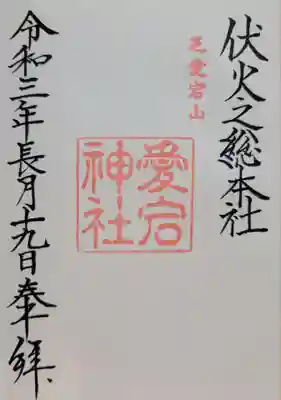 伏火之総本社
芝愛宕山
愛宕神社
令和三年長月十九日奉拝